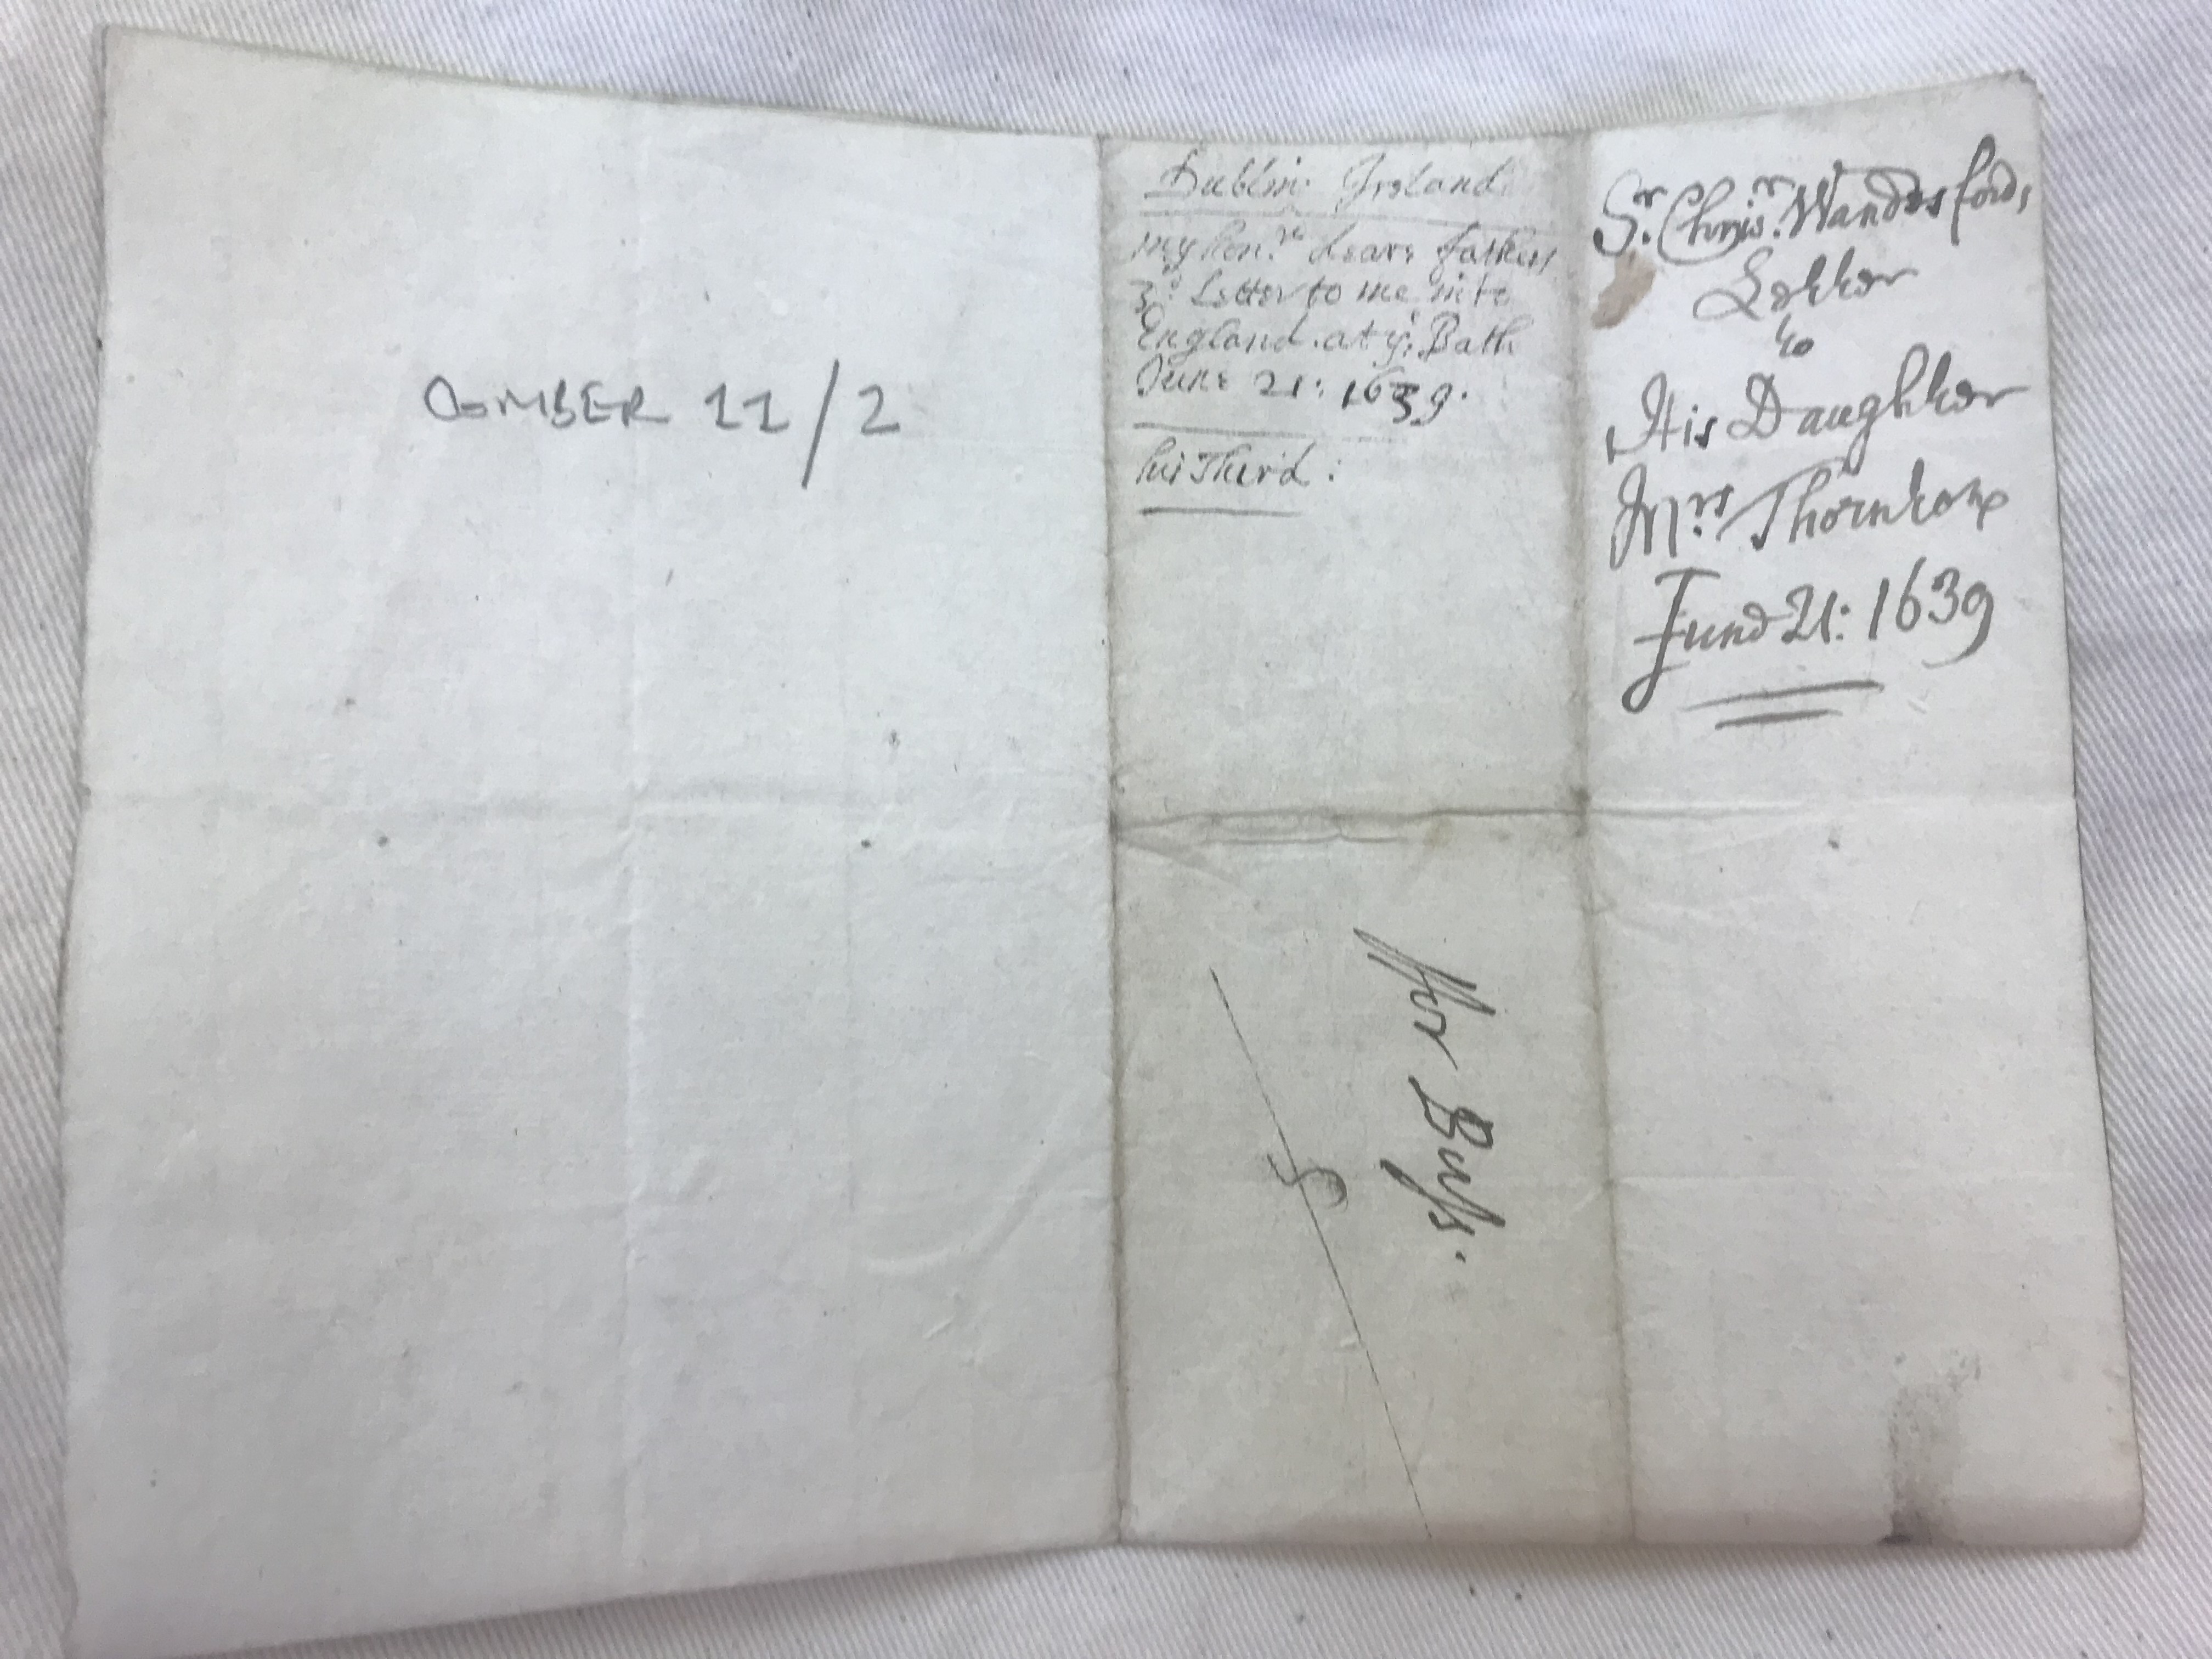 COMBER 11/2
Dublin: Ireland
my hon:rd deare fathers
3d: Letter to me into
England. at ye: Bath
June 21: 1639.
his Third:
Sr: Chris:r Wandesfords
Letter
to
His Daughter
Mrs: Thornton
June 21: 1639